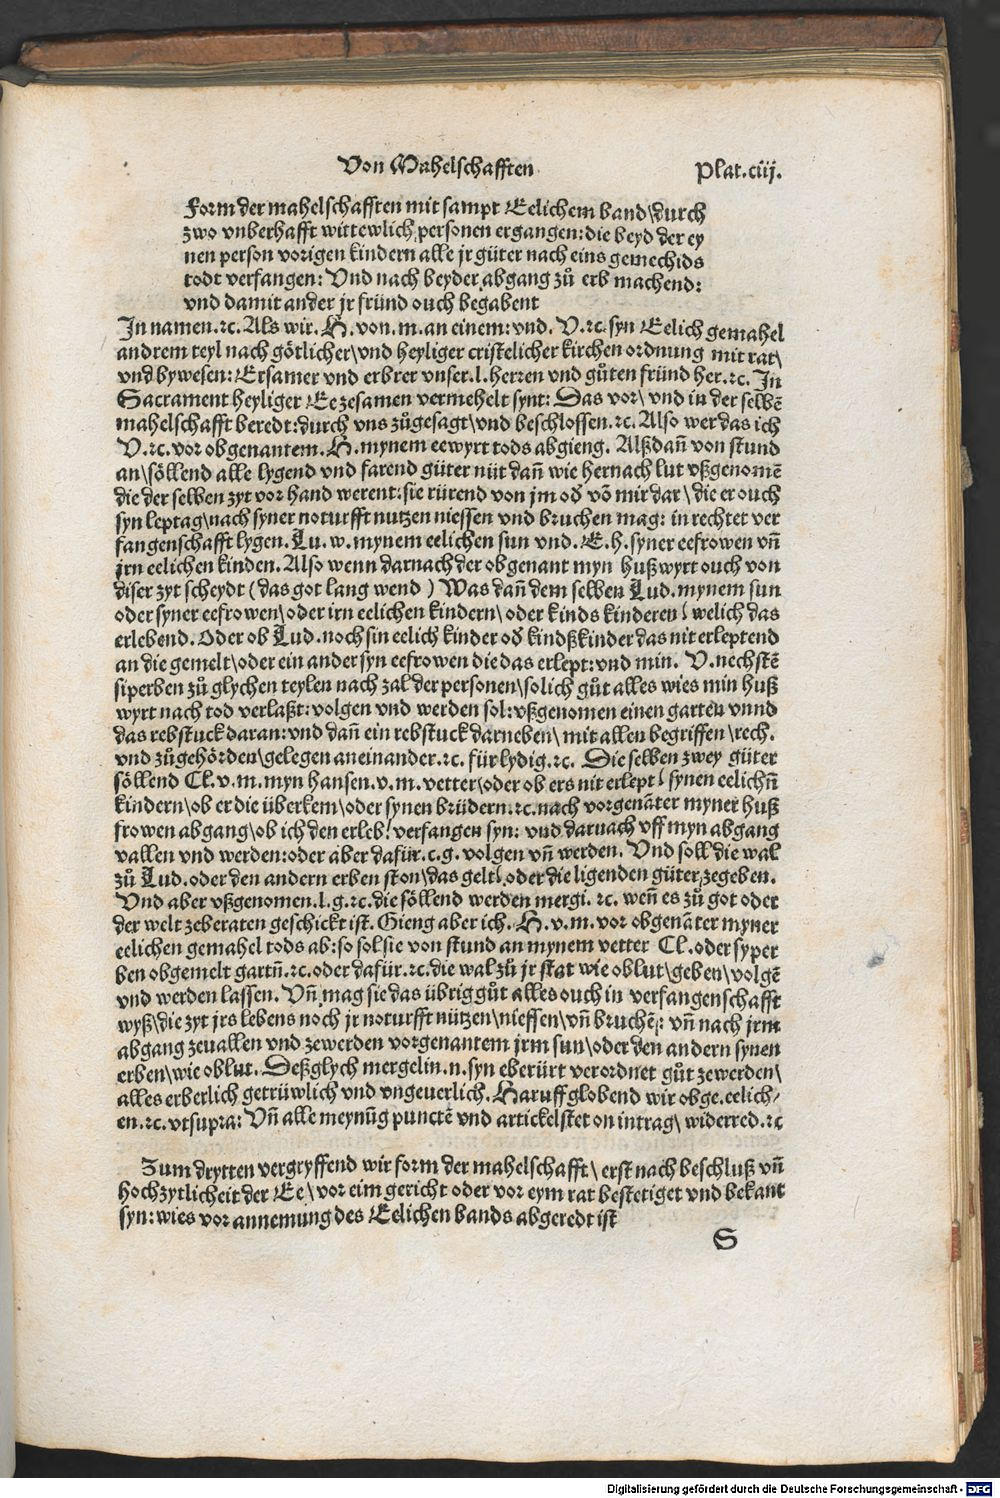 Von Mahelschafften
Plat.ciij.
Form der mahelschafften mit sampt Eelichem band\durch
zwo vnberhafft wittewlich personen ergangen: die beyd der ey
nen person vorigen kindern alle jr güter nach eins gemechids
todt verfangen: Vnd nach beyder abgang zů erb machend:
vnd damit ander jr fründ ouch begabent
In namen.ꝛc. Als wir. H. von.m. an einem: vnd. V.ꝛc. syn Eelich gemahel
andrem teyl nach götlicher\vnd heyliger cristelicher kirchen ordnung mit rat\
vnd bywesen: Ersamer vnd erbrer vnser.l. herren vnd gůten fründ her.ꝛc. In
Sacrament heyliger Ee zesamen vermehelt synt: Das vor\ vnd in der selbē
mahelschafft beredt: durch vns zůgesagt\vnd beschlossen.ꝛc. Also wer das ich
V.ꝛc. vor obgenantem. H. mynem eewyrt tods abgieng. Alßdañ von stund
an\söllend alle lygend vnd farend güter nüt dañ wie hernach lut vßgenomē
die der selben zyt vor hand werent: sie rürend von jm od̕ vō mir dar\die er ouch
syn leptag\nach syner noturfft nutzen niessen vnd bruchen mag: in rechtet ver
fangenschafft lygen. Lu. w. mynem eelichen sun vnd. E. h. syner eefrowen vñ
jrn eelichen kinden. Also wenn darnach der obgenant myn hußwyrt ouch von
diser zyt scheydt (das got lang wend) Was dañ dem selben Lud. mynem sun
oder syner eefrowen\oder irn eelichen kindern\oder kinds kinderen\ welich das
erlebend. Oder ob Lud. noch sin eelich kinder od̕ kindßkinder das nit erleptend
an die gemelt\oder ein ander syn eefrowen die das erlept: vnd min. V. nechstē
siperben zů glychen teylen nach zal der personen\solich gůt alles wies min huß
wyrt nach tod verlaßt: volgen vnd werden sol: vßgenomen einen garten vnnd
das rebstuck daran: vnd dañ ein rebstuck darneben\ mit allen begriffen\rech.
vnd zůgehörden\gelegen aneinander.ꝛc. für lydig.ꝛc. Die selben zwey güter
söllend Cl. v. m. myn hansen. v. m. vetter\oder ob ers nit erlept\ synen eelichñ
kindern\ob er die überkem\oder synen brüdern.ꝛc. nach vorgenāter myner huß
frowen abgang\ob ich den erleb: verfangen syn: vnd darnach vff myn abgang
vallen vnd werden: oder aber dafür. c. g. volgen vñ werden. Vnd soll die wal
zů Lud. oder den andern erben ston\das gelt\ oder die ligenden güter zegeben.
Vnd aber vßgenomen. l. g.ꝛc. die söllend werden mergi. ꝛc. weñ es zů got oder
der welt zeberaten geschickt ist. Gieng aber ich. H. v. m. vor obgenāter myner
eelichen gemahel tods ab: so sol sie von stund an mynem vetter Cl. oder syper
ben obgemelt gartñ.ꝛc. oder dafür.ꝛc. die wal zů jr stat wie oblut\geben\volgē
vnd werden lassen. Vñ mag sie das übrig gůt alles ouch in verfangenschafft
wyß\die zyt jrs lebens noch jr noturfft nützen\nieffen\vñ bruchē: vñ nach jrm
abgang zeuallen vnd zewerden vorgenantem jrm sun\oder den andern synen
erben\wie oblut. Deßglych mergelin. n. syn eberürt verordnet gůt zewerden\
alles erberlich getrüwlich vnd vngeuerlich. Haruff globend wir obge. eelich⸗
en.ꝛc. vtsupra: Vñ alle meynūg punctē vnd artickel stet on intrag\ widerred.ꝛc
Zum drytten vergryffend wir form der mahelschafft\ erst nach beschluß vñ
hochzytlicheit der Ee\vor eim gericht oder vor eym rat bestetiget vnd bekant
syn: wies vor annemung des Eelichen bands abgeredt ist
S
Digitalisierung gefördert durch die Deutsche Forschungsgemeinschaft - DFG